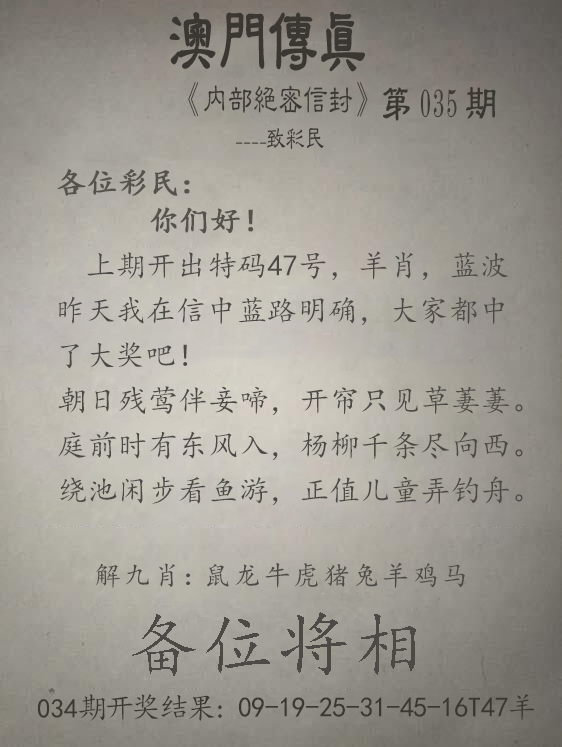 澳門傳眞
《内部絕密信封》第035期
----致彩民
各位彩民：
你们好！
上期开出特码47号，羊肖，蓝波
昨天我在信中蓝路明确，大家都中
了大奖吧！
朝日残莺伴妾啼，开帘只见草萋萋。
庭前时有东风入，杨柳千条尽向西。
绕池闲步看鱼游，正值儿童弄钓舟。
解九肖：鼠龙牛虎猪兔羊鸡马
备位将相
034期开奖结果：09-19-25-31-45-16T47羊